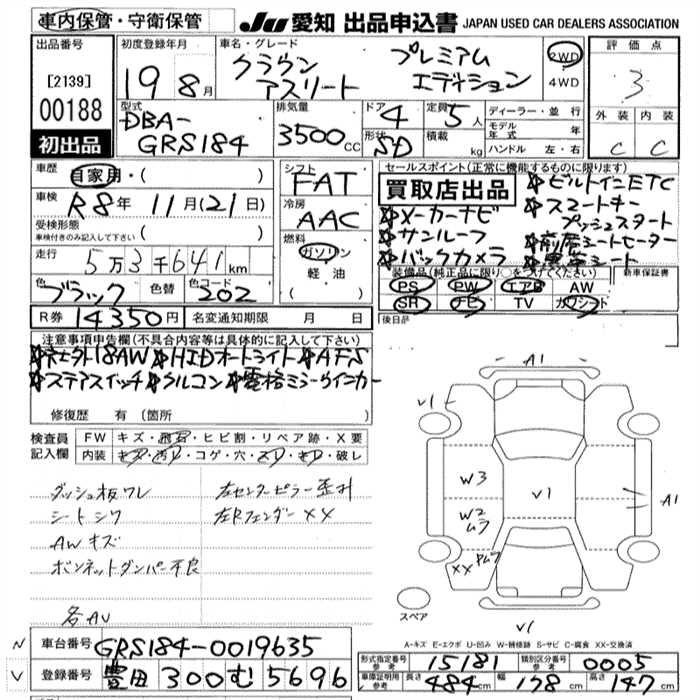 車内保管・守衛保管
JU 愛知 出品申込書 JAPAN USED CAR DEALERS ASSOCIATION
出品番号
[2139]
00188
初出品
初度登録年月
19 8月
車名・グレード
クラウン プレミアム
アスリート エディション
2WD
4WD
評価点
3
外装 内装
C C
型式
DBA-
GRS184
排気量
3500CC
ドア 4
形状 SD
定員 5人
積載 kg
ディーラー・並行
モデル年式 年
ハンドル 左・右
車歴
自家用・( )
車検 R8年 11月(21日)
受検形態
車検付きのみ記入して下さい ( )
走行
5万3千641km
色 ブラック 色替 ( ) カラーコード 202
R券 14350円 名変通知期限 月 日
シフト
FAT
冷房
AAC
燃料
ガソリン
軽油
( )
セールスポイント(正常に機能するものに限ります)
買取店出品
メーカーナビ
サンルーフ
バックカメラ
ビルトインETC
スマートキー
プッシュスタート
前席シートヒーター
シート
装備品(純正品に限り○をつけてください) 新車保証書
PS PW エアB AW
SR ナビ TV カワシート
後日品
注意事項申告欄(不具合内容等は具体的に記入して下さい)
18AW HIDオートライト AFS
ステアスイッチ クルコン 電格ミラーウインカー
修復歴 有 (箇所 )
検査員記入欄
FW キズ・飛石・ヒビ割・リペア跡・X要
内装 キズ・汚れ・コゲ・穴・スレ・キレ・破レ
ダッシュ板ワレ
シートシワ
AWキズ
ボンネットダンパー不良
各AU
左センターピラー歪み
左Rフェンダー××
A1
V1
W3
W2
ムラ
V1
A1
××
V1
スペア
A-キズ E-エクボ U-凹み W-補修跡 S-サビ C-腐食 XX-交換済
N 車台番号 GRS184-0019635
V 登録番号 豊田 300 む 5696
形式指定番号 参考 15181 類別区分番号 参考 0005
車庫証明用 参考 長さ 484cm 幅 178cm 高さ 147cm